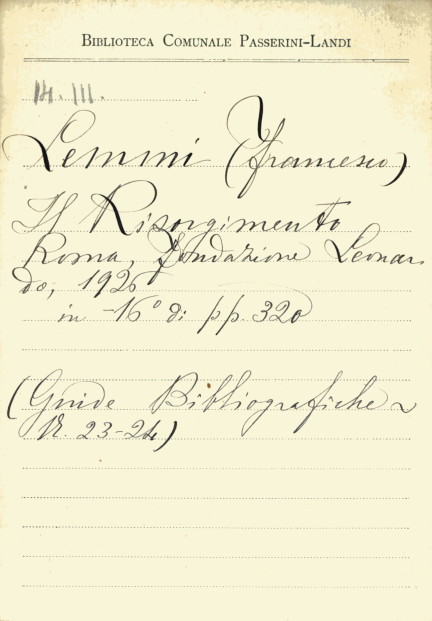 BIBLIOTECA COMUNALE PASSERINI-LANDI
14.III.
Lemmi (Francesco)
Il Risorgimento
Roma, Fondazione Leonar
do, 1926
in -16° di pp. 320
(Guide Bibliografiche
N. 23-24)